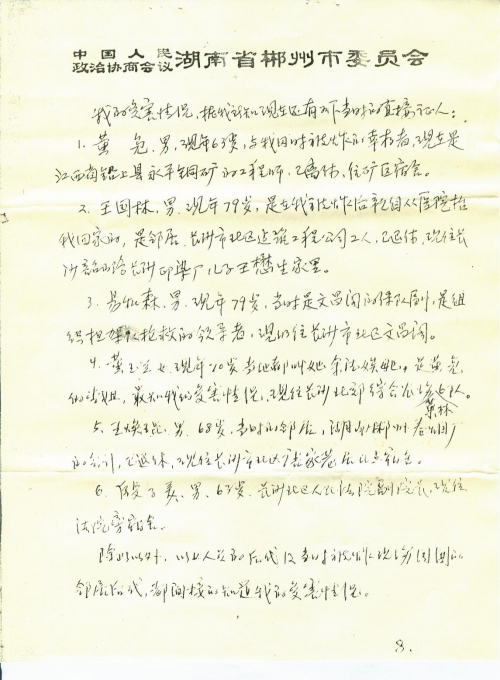 中国人民
政治协商会议 湖南省郴州市委员会
我的受害情况，据我所知现在还有以下当时的直接证人：
1. 黄 ，男，现年63岁，与我同时被炸的幸存者，现在是
江西省铅上县永平铜矿的工程师，已离休，住矿区宿舍。
2. 王国林，男，现年79岁，是在我被炸后亲自从医院抬
我回家的，是邻居，长沙市北区建筑工程公司工人，已退休，现住长
沙 路长沙印染厂儿子王懋生家里。
3. 易 森，男，现年79岁，当时是文昌阁的保队副，是组
织担架队抢救的领导者，现仍住长沙市北区文昌阁。
4. 黄玉兰 女，现年70岁 当地都叫她 ，是黄
的 姐，最知我的受害情况，现住长沙北郊综合农场七队。
5. 王焕 ，男，68岁，当时的邻居，湖南郴州卷烟厂
的会计，已退休，现住长沙市北区 家巷
6. 任 美，男，63岁，长沙北区人民法院副院长，现住
法院宿舍。
除此以外，以上人员的后代及当时被炸地点周围的
邻居后代，都间接的知道我的受害情况。
8.